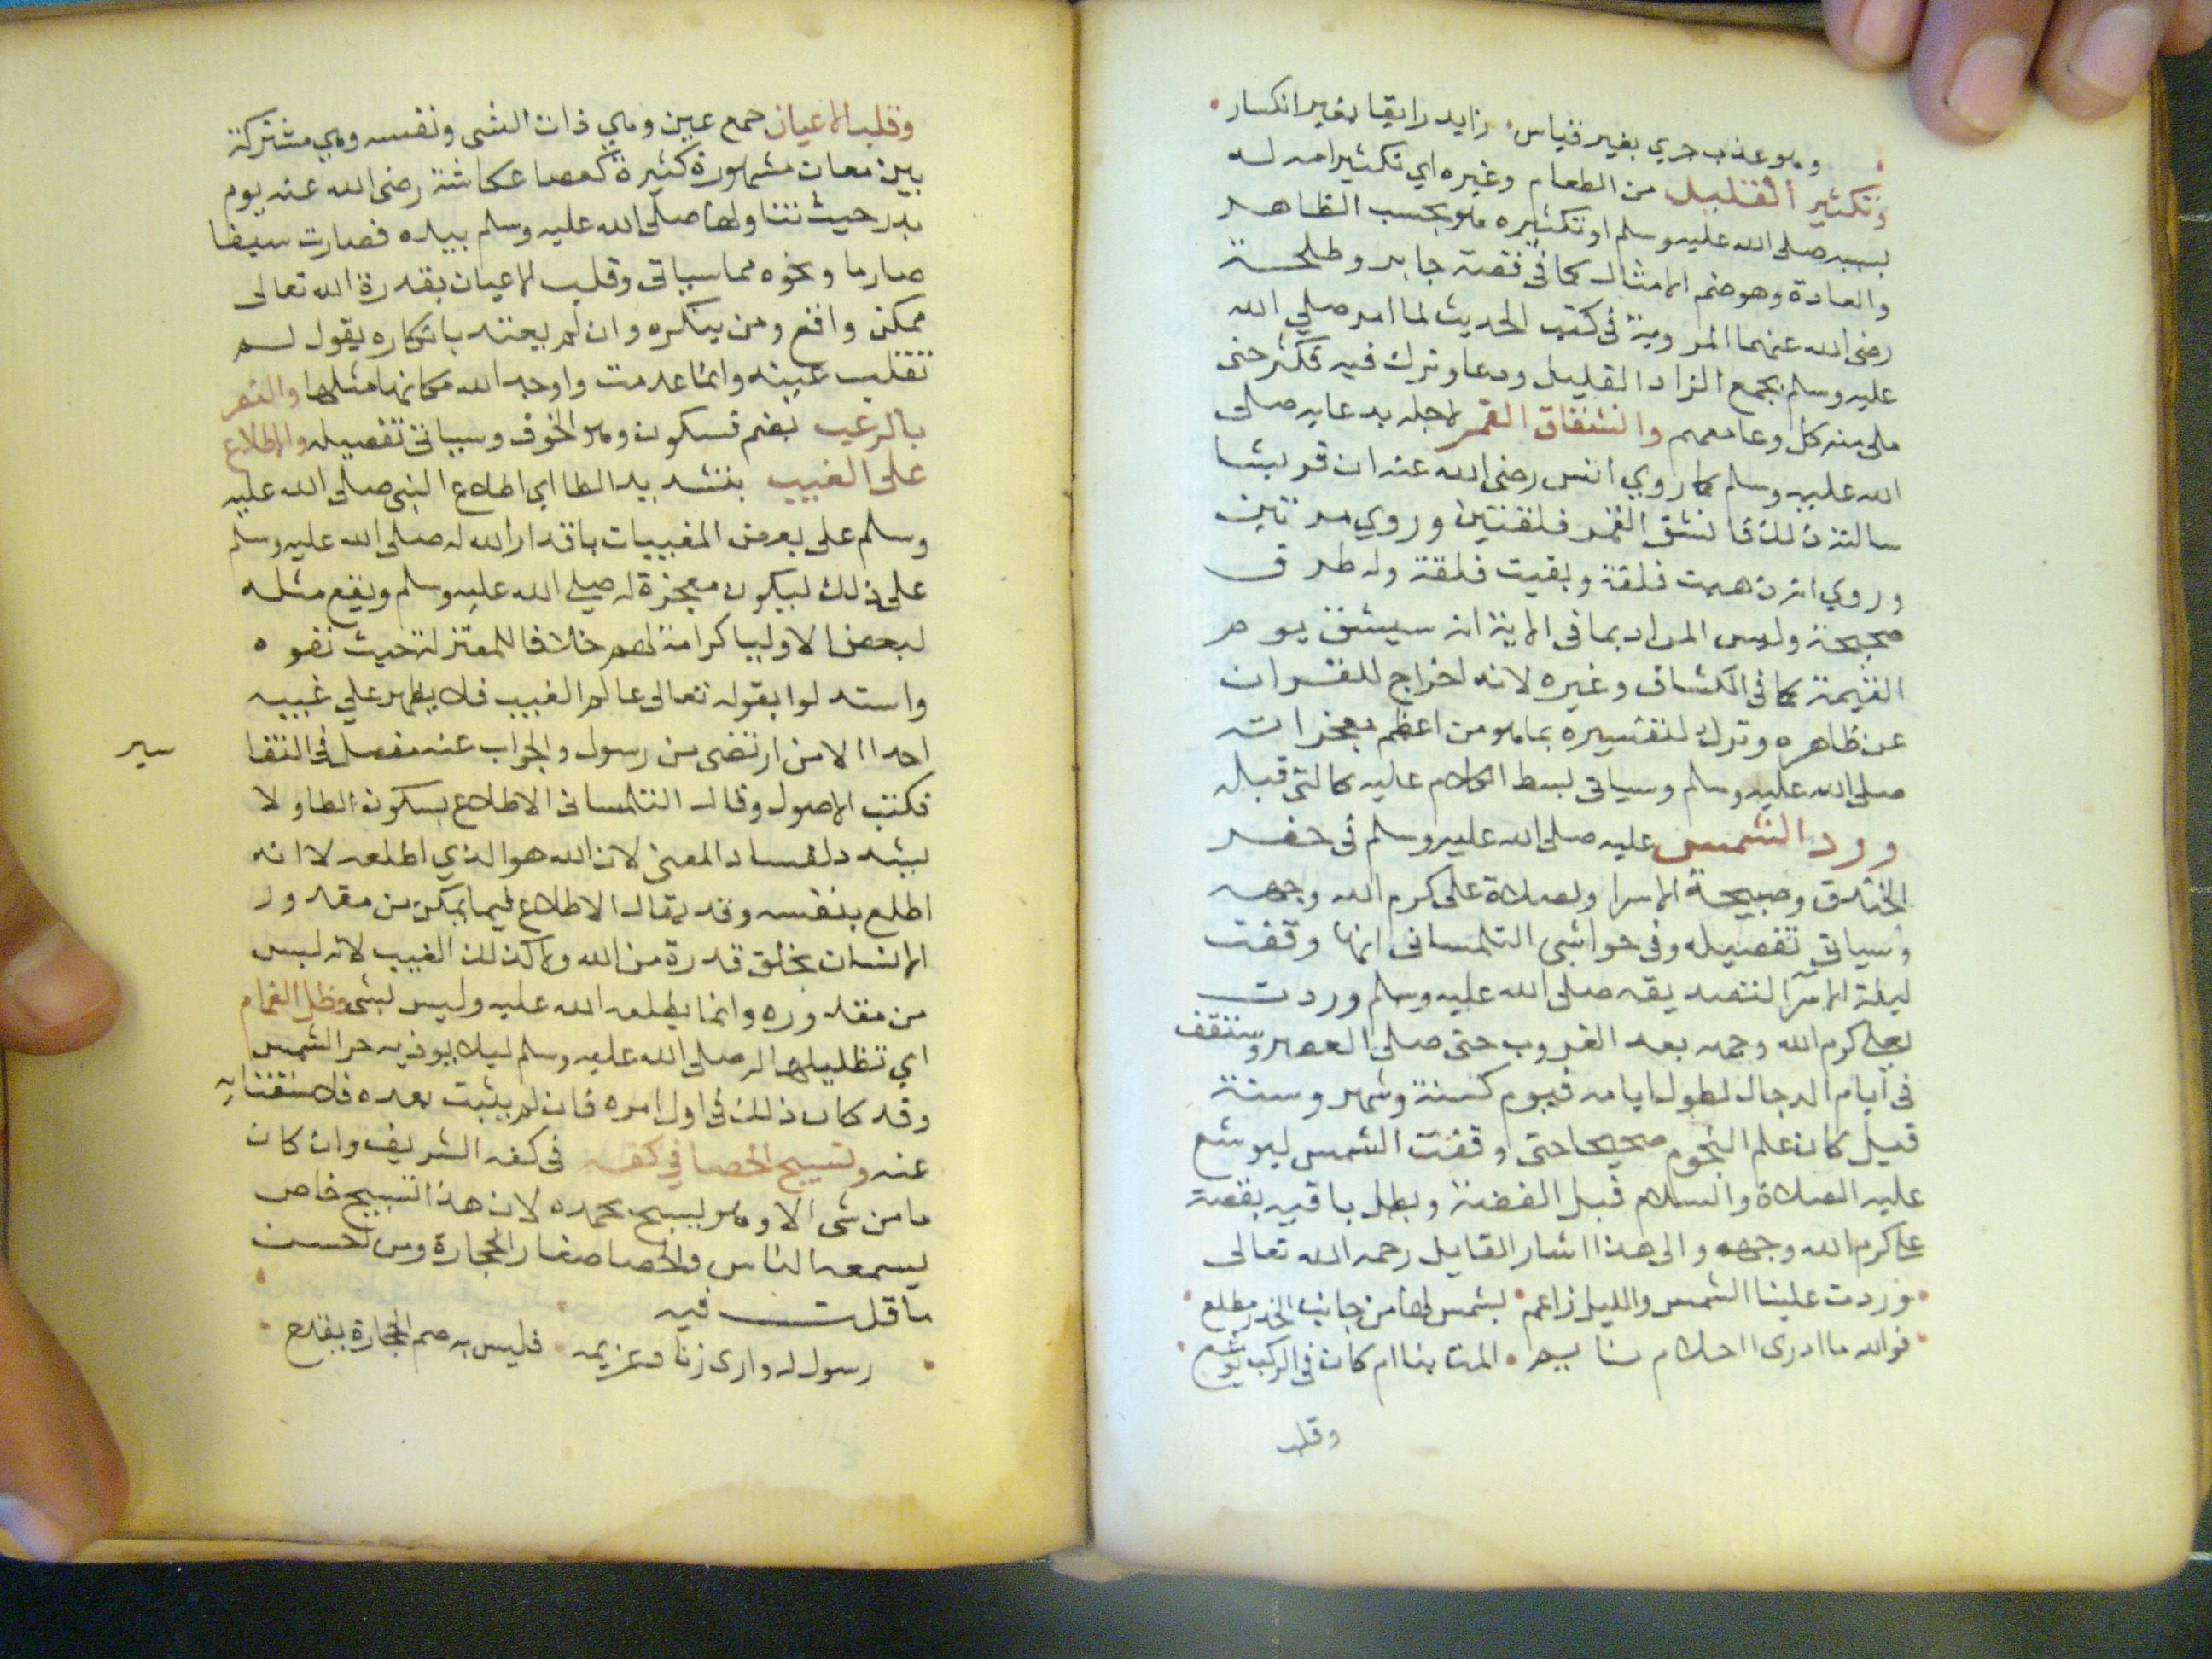 وهو عذب جري بغير قياس زايد رايقا بغير انكسار
وتكثير القليل من الطعام وغيره اي تكثير امه له
بسببه صلى الله عليه وسلم او تكثيره هو بحسب الظاهر
والعادة وهو ضم الامثال كما في قصة جابر وطلحة
رضى الله عنهما المروية في كتب الحديث لما امر صلي الله
عليه وسلم بجمع الزاد القليل ودعا وبرك فيه فكثر حتى
ملى منه كل وعا معهم وانشقاق القمر لاجله بدعايه صلى
الله عليه وسلم كما روي انس رضى الله عنه ان قريشا
سالته ذلك فانشق القمر فلقتين وروي مرتين
وروي انه ذهبت فلقة وبقيت فلقة وله طرق
صحيحة وليس المراد بما في الاية انه سينشق يوم
القيمة كما في الكشاف وغيره لانه اخراج للقران
عن ظاهره وترك لتفسيره بما هو من اعظم معجزاته
صلى الله عليه وسلم وسياتي بسط الكلام عليه كالتي قبله
ورد الشمس عليه صلى الله عليه وسلم في حفر
الخندق وصبيحة الاسرا ولصلاة على كرم الله وجهه
وسياتي تفصيله وفي حواشي التلمساني انها وقفت
ليلة الاسرآ لتصديقه صلى الله عليه وسلم وردت
لعلى كرم الله وجهه بعد الغروب حتى صلى العصر وستقف
في ايام الدجال لطول ايامه فيوم كسنة وشهر وستة
قيل كان علم النجوم صحيحا حتى وقفت الشمس ليوشع
عليه الصلاة والسلام قبل القصة وبطل باقيه بقصة
على كرم الله وجهه والى هذا اشار القايل رحمه الله تعالى
وردت علينا الشمس والليل زاعم بشمس لها من جانب الخدر مطلع
فوالله ما ادرى ااحلام نايم المت بنا ام كان في الركب يوشع
وقلب
وقلب الاعيان جمع عين وهي ذات الشى ونفسه وهي مشتركة
بين معان مشهورة كثيرة كعصا عكاشة رضى الله عنه يوم
بدر حيث تناولها صلى الله عليه وسلم بيده فصارت سيفا
صارما ونحوه مما سياتى وقلب الاعيان بقدرة الله تعالى
ممكن واقع ومن ينكره وان لم يعتد بانكاره يقول لم
تنقلب عينه وانما عدمت واوجد الله مكانها مثلها والنصر
بالرعب بضم فسكون وهو الخوف وسياتي تفصيله والاطلاع
على الغيب بتشديد الطا اي اطلاع النبي صلى الله عليه
وسلم على بعض المغيبات باقدار الله له صلى الله عليه وسلم
على ذلك ليكون معجزة له صلي الله عليه وسلم ويقع مثله
لبعض الاوليا كرامة لهم خلافا للمعتزلة حيث نفوه
واستدلوا بقوله تعالى عالم الغيب فلا يظهر علي غيبه
احدا الا من ارتضى من رسول والجواب عنه مفصل في التفا
سير
فكتب الاصول وقال التلمسانى الاطلاع بسكون الطا ولا
يشدد لفساد المعنى لان الله هو الذي اطلعه لا انه
اطلع بنفسه وقد يقال الاطلاع فيما يمكن من مقدور
الانسان بخلق قدرة من الله ولا كذلك الغيب لانه ليس
من مقدوره وانما يطلعه الله عليه وليس بشى وظل الغمام
اي تظليلها له صلى الله عليه وسلم ليلا يوذيه حر الشمس
وقد كان ذلك في اول امره فان لم يثبت بعده فلاستغنايه
عنه وتسبيح الحصا في كفه في كفه الشريف وان كان
ما من شى الا وهو يسبح بحمده لان هذا التسبيح خاص
يسمعه الناس والحصا صغار الحجارة ومن احسن
ما قلت فيه
رسول له وارى زناد عزيمه فليس به صم الحجارة يقدح